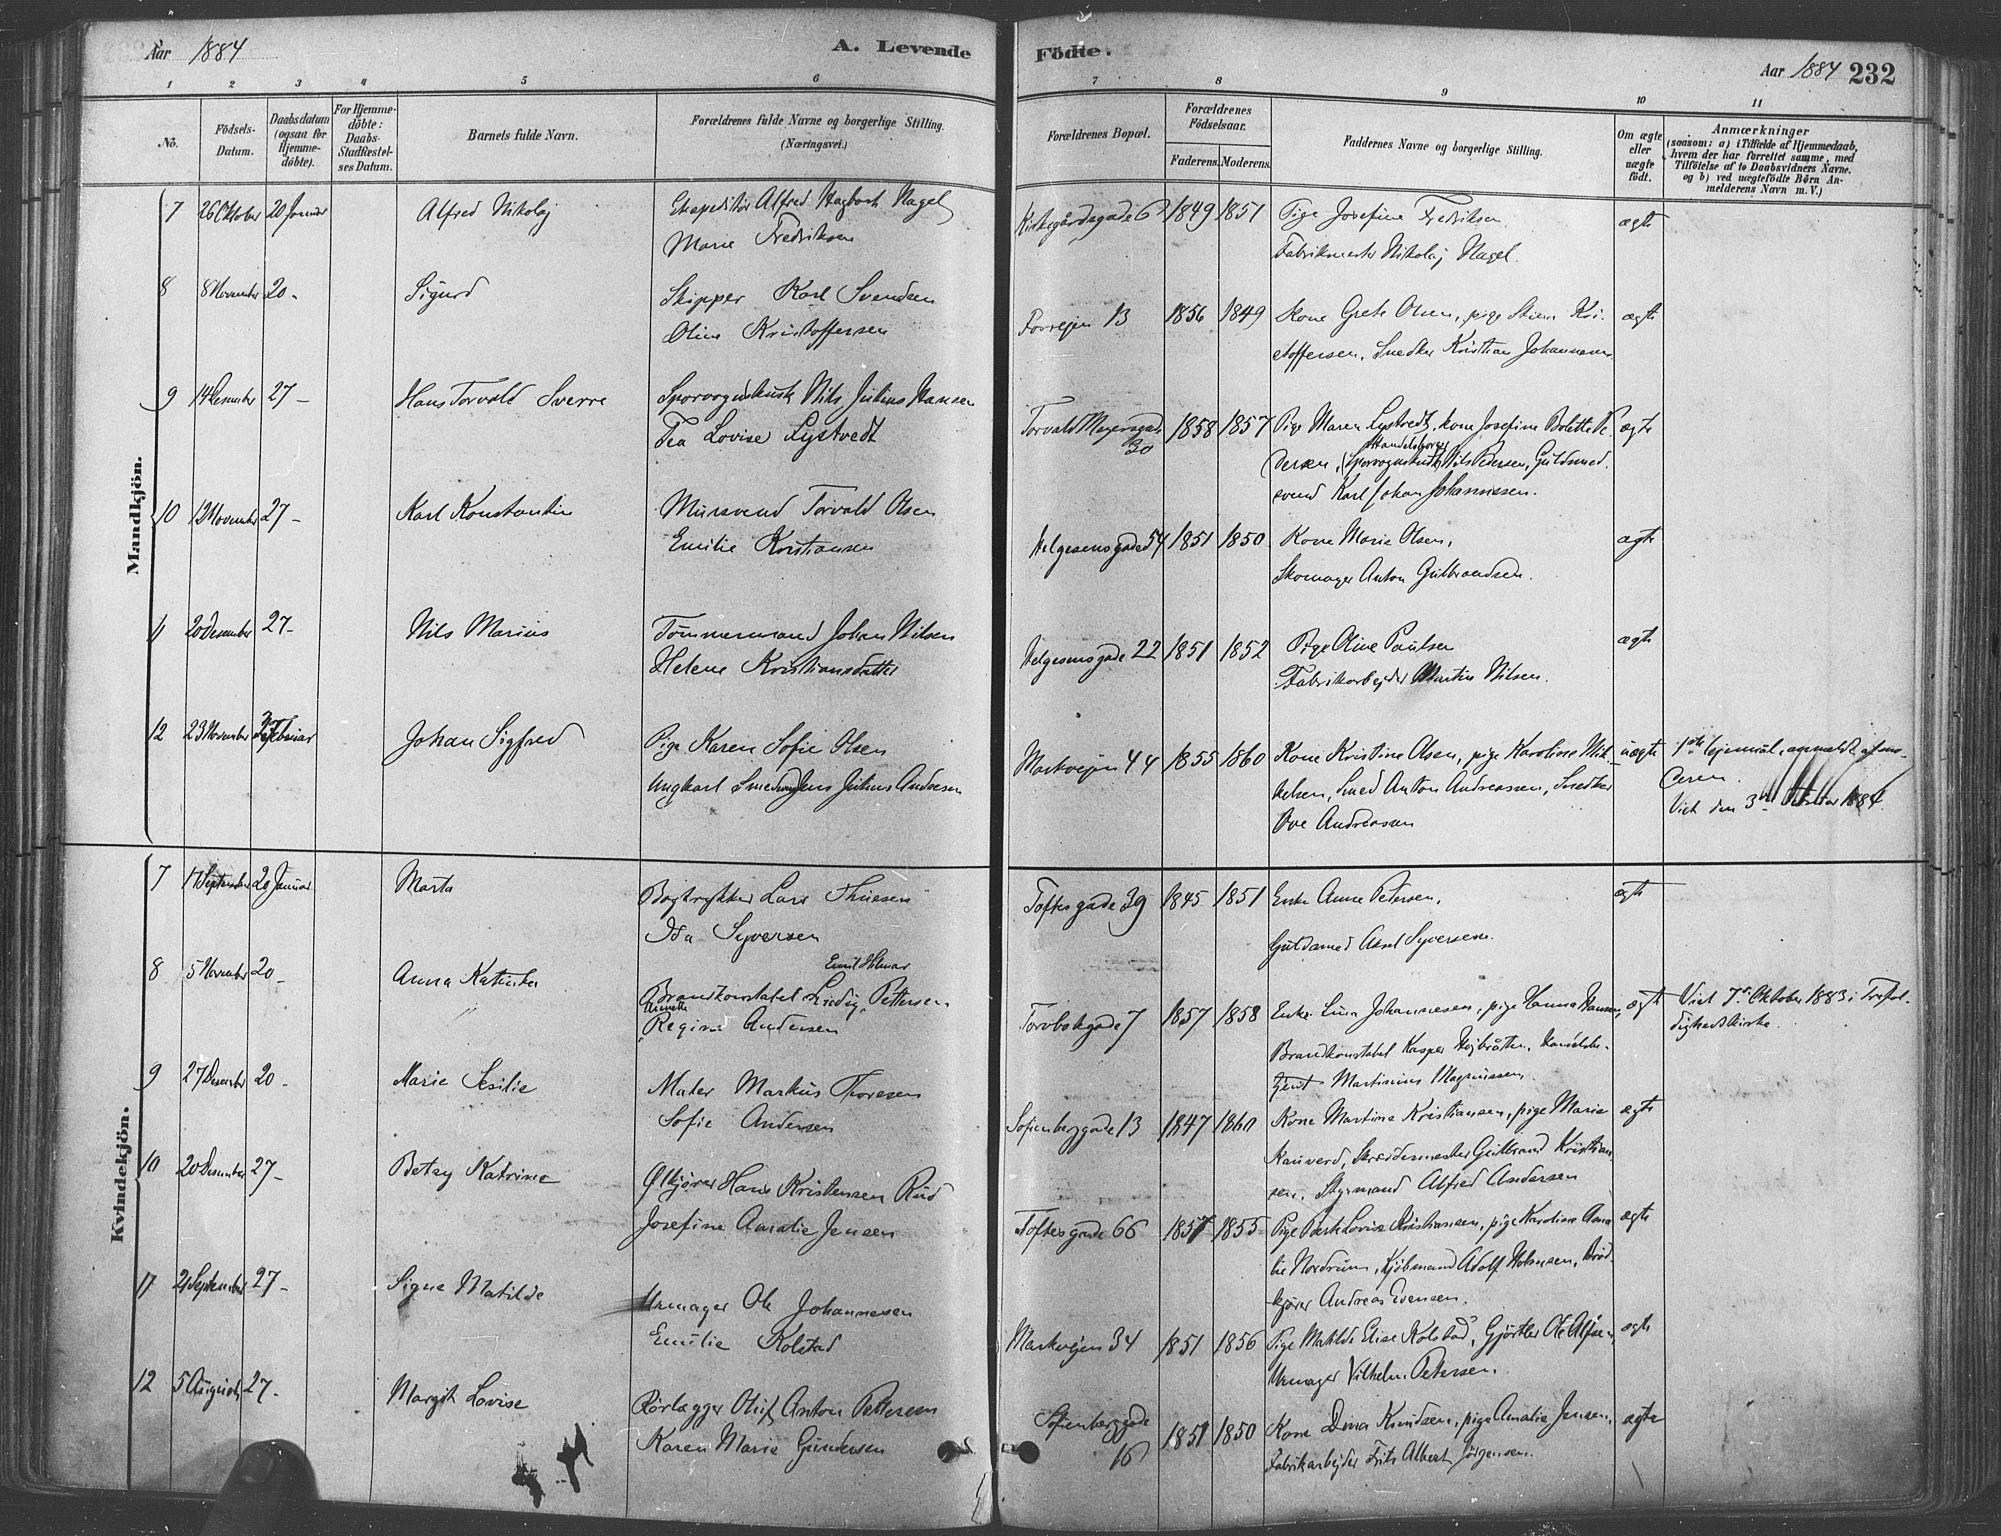 Aar 1884
A. Levende
Födte.
Aar 1884 232
1 2 3 4 5 6 7 8 9 10 11
No.
Födsels-
Datum.
Daabsdatum
(ogsaa før
Hjemme-
döbte).
For Hjemme-
döbte:
Daabs
Stadfæstel-
ses Datum.
Barnets fulde Navn.
Forældrenes fulde Navne og borgerlige Stilling.
(Næringsvei.)
Forældrenes Bopæl.
Forældrenes
Födselsaar.
Faderens. Moderens.
Faddernes Navne og borgerlige Stilling.
Om ægte
eller
uægte
födt.
Anmærkninger
(saasom: a) i Tilfælde af Hjemmedaab,
hvem der har forrettet samme, med
Tilföielse af to Daabsvidners Navne,
og b) ved uægtefödte Börn An-
melderens Navn m. V.)
Mandkjön.
7 26 Oktober 20 Januar Alfred Nikolaj Ekspeditör Alfred Hagbart Nagel
Marie Fredriksen
Kirkegårdsgade 6 1849 1851 Pige Josefine Fredriksen
Fabrikmester Nikolaj Nagel. ægte
8 8 November 20 - Sigurd Skipper Karl Svendsen
Oline Kristoffersen
Torvejen 13 1856 1849 Kone Grete Olsen, pige Stina Kri-
stoffersen, Snedker Kristian Johannesen ægte
9 14 Desember 27 - Hans Torvald Sverre Sporvognskusk Nils Julius Hansen
Tea Lovise Lystvedt
Torvald Meyersgade
30 1858 1857 Pige Maren Lystvedt, kone Josefine Bolette Pe-
Handelsborger
dersen, Sporvognskusk Nils Pedersen, Guldsmed-
svend Karl Johan Johannesen. ægte
10 12 November 27 - Karl Konstantin Mursvend Torvald Olsen
Emilie Kristiansen
Helgesensgade 54 1851 1850 Kone Marie Olsen,
Skomager Anton Gulbrandsen. ægte
11 20 Desember 27 - Nils Marius Tømmermand Johan Nilsen
Helene Kristiansdatter
Helgesensgade 22 1851 1852 Pige Oline Paulsen
Fabrikarbejder Martin Nilsen. ægte
12 23 November 3 Februar Johan Sigfred Pige Karen Sofie Olsen
Ungkarl Smedsvend Jens Julius Andresen
Markvejen 44 1855 1860 Kone Kristine Olsen, pige Karoline Mik-
kelsen, Smed Anton Andreassen, Snedker
Ove Andreasen uægte
1ste lejermål, anmeldt af mo-
deren.
Viet den 3die Oktober 1884.
Kvindekjön.
7 17 September 20 Januar Marta Bogtrykker Lars Thuesen
Ida Syversen
Toftesgade 39 1845 1851 Enke Anne Petersen,
Guldsmed Aksel Syversen. ægte
8 5 November 20 - Anna Katinka Emil Hilmar
Brandkonstabel Ludvig Pettersen
Annette
Regine Andersen
Torvbakgade 7 1857 1858 Enke Lina Johannesen, pige Hanna Hansen,
Brandkonstabel Kasper Højbråten, Handelsbe-
tjent Martinius Magnussen. ægte
Viet 7de Oktober 1883 i Trefol-
dighedskirke.
9 27 Desember 20 - Marie Sesilie Maler Markus Thoresen
Sofie Andersen
Sofienberggade 13 1847 1860 Kone Martine Kristiansen, pige Marie
Hauverd, Skreddermester Gulbrand Kristian-
sen, Styrmand Alfred Andersen ægte
10 20 Desember 27 - Betzy Katrine Ølkjører Hans Kristensen Rud
Josefine Amalie Jensen
Toftesgade 66 1857 1855 Pige Lovise Kristiansen, pige Karoline Ama-
lie Nordrum, Kjøbmand Adolf Holmsen, Brød-
kjører Andreas Evensen. ægte
11 21 September 27 - Signe Matilde Urmager Ole Johannesen
Emilie Kolstad
Markvejen 34 1851 1856 Pige Matilde Elise Kolstad, Gjørtler Ole Alfsen,
Urmager Vilhelm Petersen. ægte
12 5 August 27 - Margit Lovise Rørlægger Oluf Anton Pettersen
Karen Marie Gundersen
Sofienberggade
16 1851 1850 Kone Dina Knudsen, pige Amalie Jensen,
Fabrikarbejder Frits Albert Jørgensen. ægte